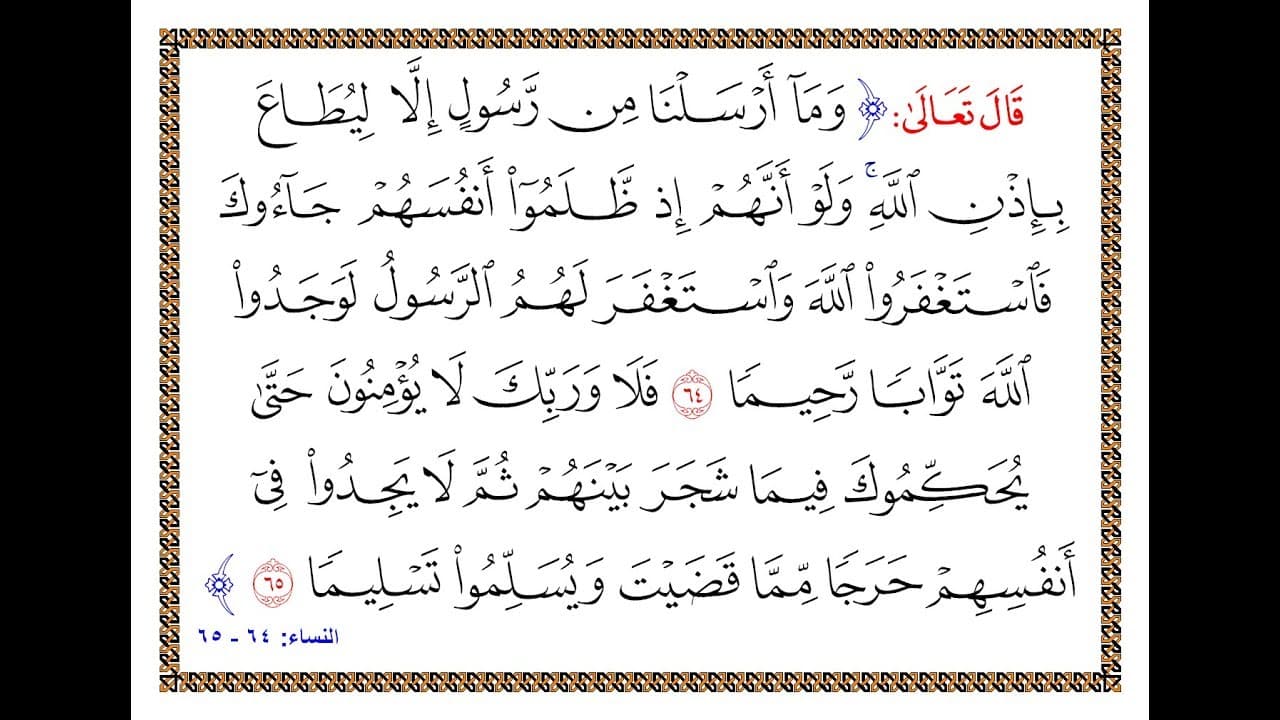 قَالَ تَعَالَىٰ: ﴿ وَمَآ أَرۡسَلۡنَا مِن رَّسُولٍ إِلَّا لِيُطَاعَ
بِإِذۡنِ ٱللَّهِۚ وَلَوۡ أَنَّهُمۡ إِذ ظَّلَمُوٓاْ أَنفُسَهُمۡ جَآءُوكَ
فَٱسۡتَغۡفَرُواْ ٱللَّهَ وَٱسۡتَغۡفَرَ لَهُمُ ٱلرَّسُولُ لَوَجَدُواْ
ٱللَّهَ تَوَّابٗا رَّحِيمٗا ٦٤ فَلَا وَرَبِّكَ لَا يُؤۡمِنُونَ حَتَّىٰ
يُحَكِّمُوكَ فِيمَا شَجَرَ بَيۡنَهُمۡ ثُمَّ لَا يَجِدُواْ فِيٓ
أَنفُسِهِمۡ حَرَجٗا مِّمَّا قَضَيۡتَ وَيُسَلِّمُواْ تَسۡلِيمٗا ٦٥ ﴾
النساء: ٦٤ - ٦٥